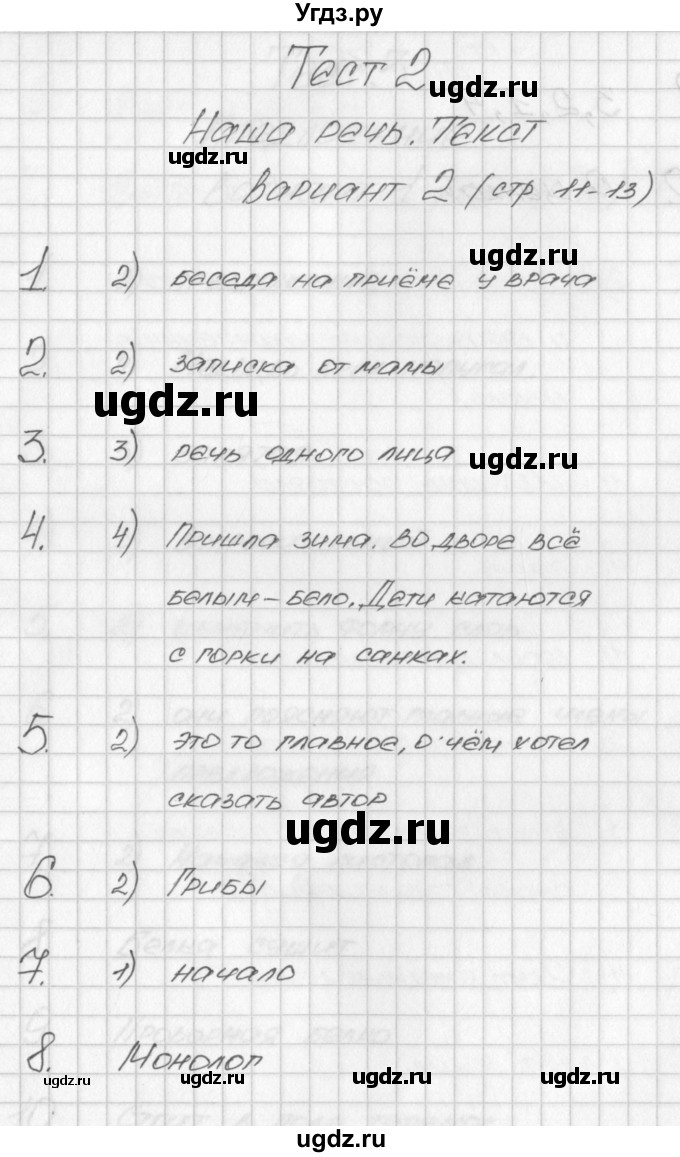 Угдз.ру
Тест 2
ugdz.ru
Наша речь. Текст
ugdz.ru
Вариант 2 (стр 11-13)
ugdz.ru
1 2) беседа на приёме у врача
2. 2) записка от мамы
ugdz.ru
3. 3) речь одного лица
ugdz.ru
4. 4) Пришла зима. Во дворе всё
белым-бело. Дети катаются
с горки на санках.
5. 2) это то главное, о чём хотел
сказать автор
ugdz.ru
6. 2) Грибы
7. 1) начало
8. Монолог
ugdz.ru ugdz.ru ugdz.ru ugdz.ru
ugdz.ru